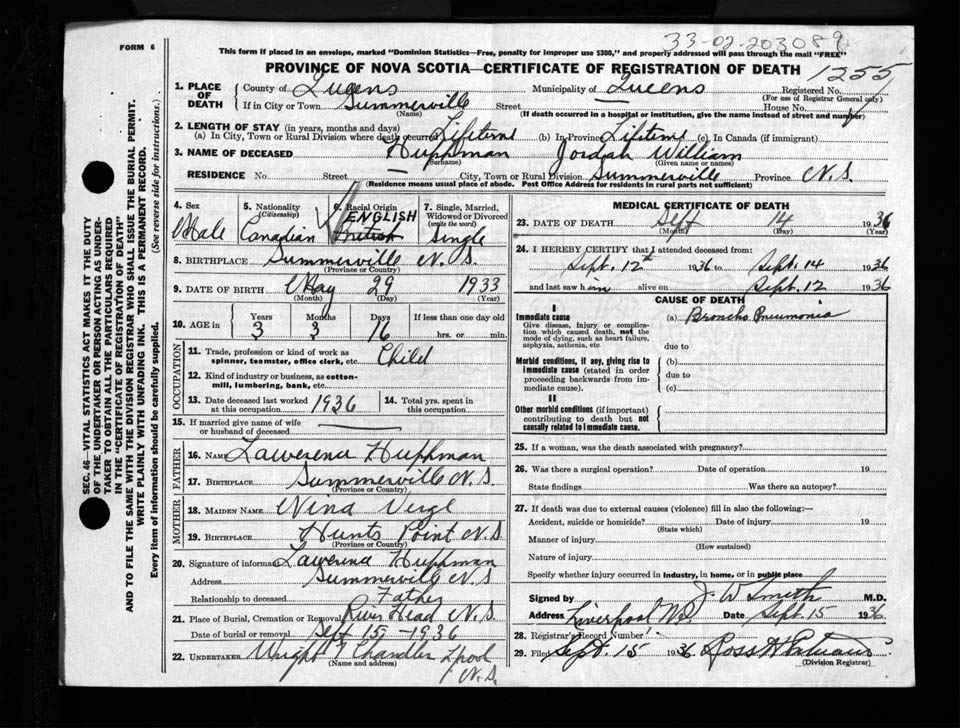 FORM 6
33-02-203089
This form if placed in an envelope, marked "Dominion Statistics—Free, penalty for improper use $300," and properly addressed will pass through the mail "FREE"
PROVINCE OF NOVA SCOTIA—CERTIFICATE OF REGISTRATION OF DEATH 1255
1. PLACE OF DEATH County of Queens Municipality of Queens Registered No.
(For use of Registrar General only)
If in City or Town Summerville Street House No.
(Name) (If death occurred in a hospital or institution, give the name instead of street and number)
2. LENGTH OF STAY (in years, months and days)
(a) In City, Town or Rural Division where death occurred Lifetime (b) In Province Lifetime (c) In Canada (if immigrant)
3. NAME OF DECEASED Huphman Jordan William
(Surname) (Given name or names)
RESIDENCE No. Street City, Town or Rural Division Summerville Province N.S.
(Residence means usual place of abode. Post Office Address for residents in rural parts not sufficient)
4. Sex 5. Nationality (Citizenship) 6. Racial Origin 7. Single, Married, Widowed or Divorced (write the word)
Male Canadian ENGLISH British Single
8. BIRTHPLACE Summerville N.S.
(Province or Country)
9. DATE OF BIRTH May 29 1933
(Month) (Day) (Year)
10. AGE in Years Months Days If less than one day old
3 3 16 hrs. or min.
OCCUPATION
11. Trade, profession or kind of work as spinner, teamster, office clerk, etc. Child
12. Kind of industry or business, as cotton-mill, lumbering, bank, etc.
13. Date deceased last worked at this occupation 1936 14. Total yrs. spent in this occupation
15. If married give name of wife or husband of deceased
FATHER
16. NAME Lawerence Huphman
17. BIRTHPLACE Summerville N.S.
(Province or Country)
MOTHER
18. MAIDEN NAME Nina
19. BIRTHPLACE Hunts Point N.S.
(Province or Country)
20. Signature of informant Lawerence Huphman
Address Summerville N.S
Relationship to deceased Father
21. Place of Burial, Cremation or Removal River Head N.S.
Date of burial or removal Sept 15 - 1936
22. UNDERTAKER Wright & Chandler L'pool
(Name and address) N.S.
MEDICAL CERTIFICATE OF DEATH
23. DATE OF DEATH Sept 14 1936
(Month) (Day) (Year)
24. I HEREBY CERTIFY that I attended deceased from:
Sept. 12th 1936 to Sept. 14 1936
and last saw him alive on Sept. 12 1936
CAUSE OF DEATH
I
Immediate cause (a) Broncho Pneumonia
Give disease, injury or complication which caused death, not the mode of dying, such as heart failure, asphyxia, asthenia, etc.
due to
Morbid conditions, if any, giving rise to immediate cause (stated in order proceeding backwards from immediate cause).
(b)
due to
(c)
II
Other morbid conditions (if important) contributing to death but not causally related to immediate cause.
25. If a woman, was the death associated with pregnancy?
26. Was there a surgical operation? Date of operation 19
State findings Was there an autopsy?
27. If death was due to external causes (violence) fill in also the following:—
Accident, suicide or homicide? Date of injury 19
(State which)
Manner of injury
(How sustained)
Nature of injury
Specify whether injury occurred in industry, in home, or in public place
Signed by J. W Smith M.D.
Address Liverpool N.S. Date Sept. 15 1936
28. Registrar's Record Number
29. Filed Sept. 15 1936 Ross
(Division Registrar)
SEC. 46—VITAL STATISTICS ACT MAKES IT THE DUTY
OF THE UNDERTAKER OR PERSON ACTING AS UNDER-
TAKER TO OBTAIN ALL THE PARTICULARS REQUIRED
IN THE "CERTIFICATE OF REGISTRATION OF DEATH"
AND TO FILE THE SAME WITH THE DIVISION REGISTRAR WHO SHALL ISSUE THE BURIAL PERMIT.
WRITE PLAINLY WITH UNFADING INK. THIS IS A PERMANENT RECORD.
Every item of information should be carefully supplied. (See reverse side for instructions.)